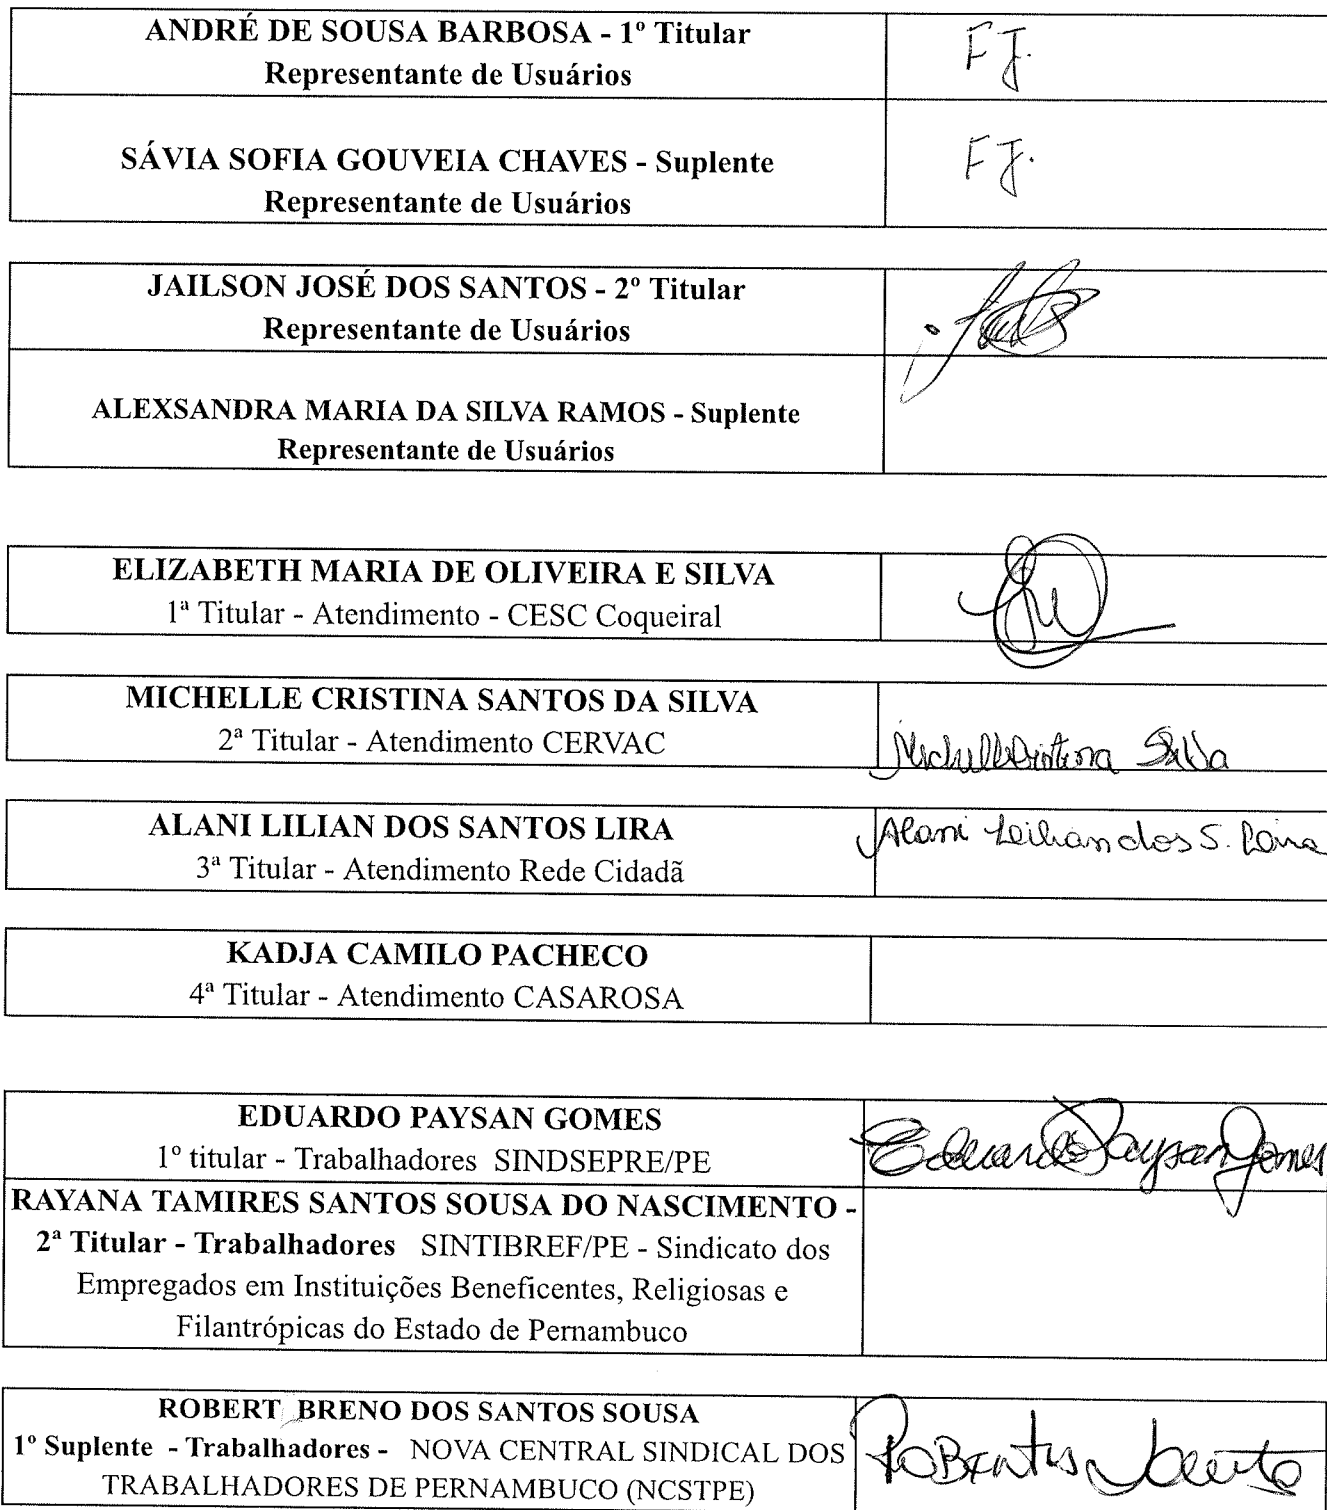 ANDRÉ DE SOUSA BARBOSA - 1º Titular
Representante de Usuários
FJ.
SÁVIA SOFIA GOUVEIA CHAVES - Suplente
Representante de Usuários
FJ.
JAILSON JOSÉ DOS SANTOS - 2º Titular
Representante de Usuários
ALEXSANDRA MARIA DA SILVA RAMOS - Suplente
Representante de Usuários
ELIZABETH MARIA DE OLIVEIRA E SILVA
1ª Titular - Atendimento - CESC Coqueiral
MICHELLE CRISTINA SANTOS DA SILVA
2ª Titular - Atendimento CERVAC
Michelle Cristina Silva
ALANI LILIAN DOS SANTOS LIRA
3ª Titular - Atendimento Rede Cidadã
Alani Leilian dos S. Lira
KADJA CAMILO PACHECO
4ª Titular - Atendimento CASAROSA
EDUARDO PAYSAN GOMES
1º titular - Trabalhadores SINDSEPRE/PE
Eduardo Paysan Gomes
RAYANA TAMIRES SANTOS SOUSA DO NASCIMENTO -
2ª Titular - Trabalhadores SINTIBREF/PE - Sindicato dos
Empregados em Instituições Beneficentes, Religiosas e
Filantrópicas do Estado de Pernambuco
ROBERT BRENO DOS SANTOS SOUSA
1º Suplente - Trabalhadores - NOVA CENTRAL SINDICAL DOS
TRABALHADORES DE PERNAMBUCO (NCSTPE)